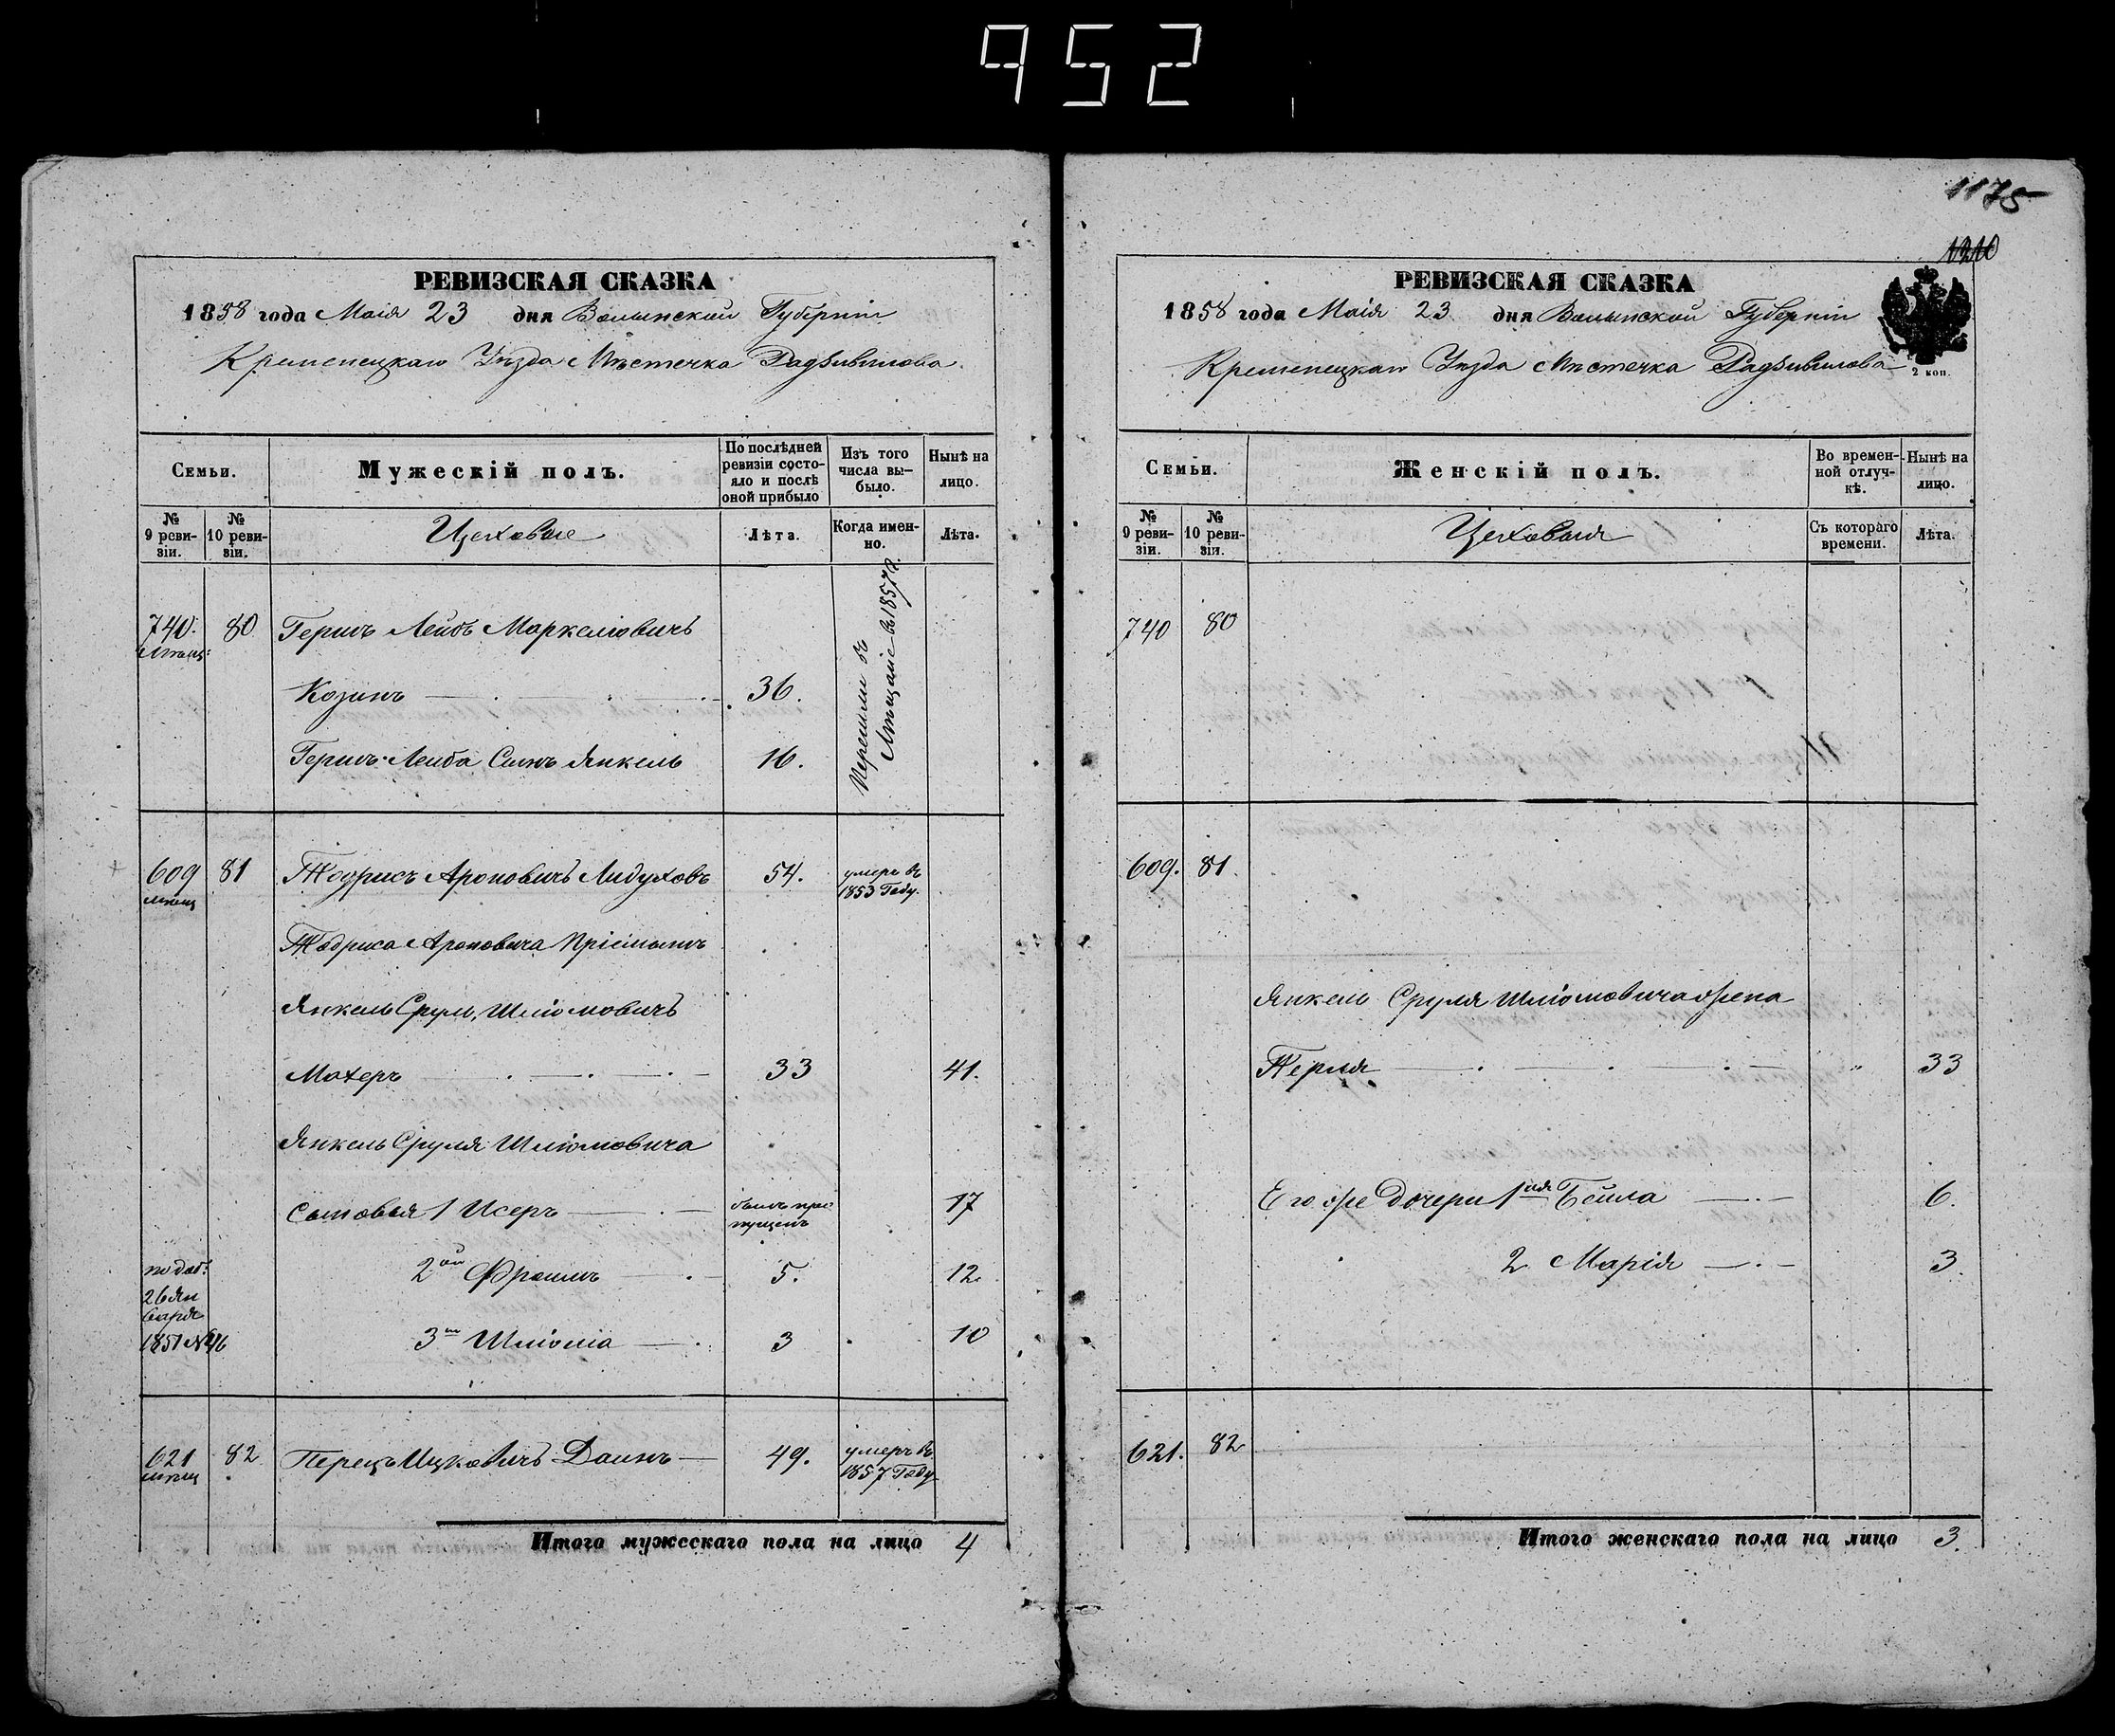 952
РЕВИЗСКАЯ СКАЗКА
1858 года Маія 23 дня Волынской Губерніи
Кременецкаго Уѣзда Мѣстечка Радзивилова.
Семьи.
Мужескій полъ.
По послѣдней ревизіи состояло и послѣ оной прибыло
Изъ того числа выбыло.
Нынѣ на лицо.
№ 9 ревизіи.
№ 10 ревизіи.
Цеховые
Лѣта.
Когда именно.
Лѣта.
740. 80 Гершъ Лейбъ Маркелiовичъ
Мѣщ:
Козинъ 36.
Гершъ Лейба Сынъ Янкель 16.
Перешли въ Мѣщаніе въ 1857 г.
609 81 Тодрисъ Ароновичъ Лидуховъ 54. умеръ въ
мѣщ 1853 Году.
Тодриса Ароновича Пріимышъ
Янкель Сруль Шліомовичъ
Махеръ 33 41.
Янкель Сруля Шліомовича
Сыновья 1 Исеръ былъ про 17
пущенъ
2ой Фроимъ 5. 12.
3iй Шліома 3 10
26 Ян
варя
1851 № 46
621 82 Перецъ Ицковичъ Даинъ 49. умеръ въ
мѣщ 1857 Году
Итого мужескаго пола на лицо 4
1175
1210
РЕВИЗСКАЯ СКАЗКА
1858 года Маія 23 дня Волынской Губерніи
Кременецкаго Уѣзда Мѣстечка Радзивилова
2 коп.
Семьи.
Женскій полъ.
Во временной отлучкѣ.
Нынѣ на лицо.
№ 9 ревизіи.
№ 10 ревизіи.
Цеховыя
Съ котораго времени.
Лѣта.
740 80
609. 81.
Янкель Сруля Шліомовича жена
Перля 33
Его же дочери 1ая Бейла 6.
2 Марія 3.
621. 82
Итого женскаго пола на лицо 3.